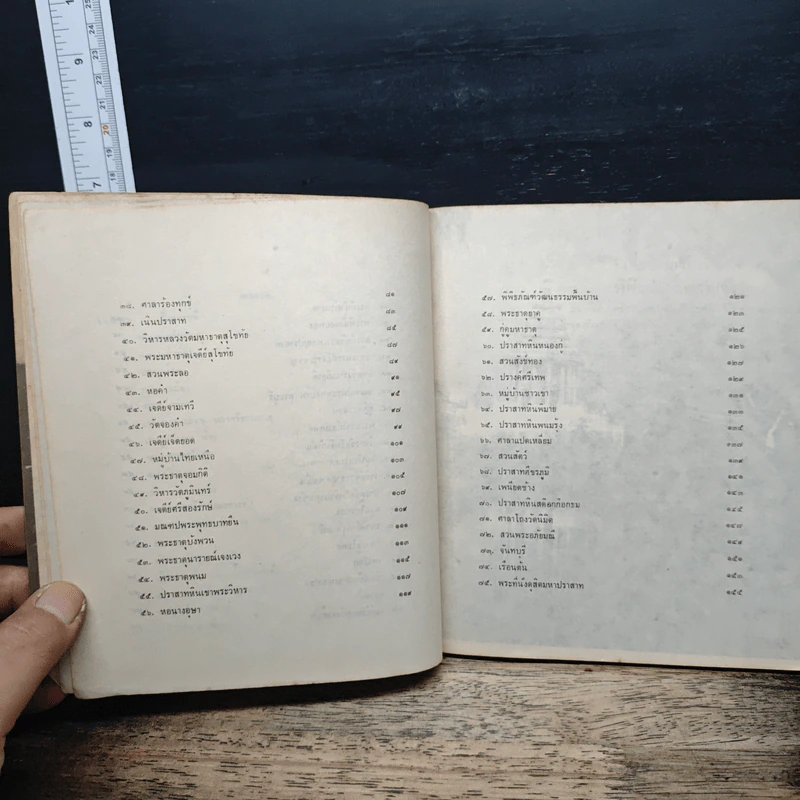 ๓๘. ศาลาร้องทุกข์ ๘๑
๓๙. เนินปราสาท ๘๓
๔๐. วิหารหลวงวัดมหาธาตุสุโขทัย ๘๕
๔๑. พระมหาธาตุเจดีย์สุโขทัย ๘๗
๔๒. สวนพระลอ ๘๙
๔๓. หอคำ ๙๑
๔๔. เจดีย์จามเทวี ๙๕
๔๕. วัดจองคำ ๙๗
๔๖. เจดีย์เจ็ดยอด ๙๙
๔๗. หมู่บ้านไทยเหนือ ๑๐๑
๔๘. พระธาตุจอมกิติ ๑๐๓
๔๙. วิหารวัดภูมินทร์ ๑๐๕
๕๐. เจดีย์ศรีสองรักษ์ ๑๐๗
๕๑. มณฑปพระพุทธบาทยืน ๑๐๙
๕๒. พระธาตุบังพวน ๑๑๑
๕๓. พระธาตุนารายณ์เจงเวง ๑๑๓
๕๔. พระธาตุพนม ๑๑๕
๕๕. ปราสาทหินเขาพระวิหาร ๑๑๗
๕๖. หอนางอุษา ๑๑๙
๕๗. พิพิธภัณฑ์วัฒนธรรมพื้นบ้าน ๑๒๑
๕๘. พระธาตุยาคู ๑๒๓
๕๙. กู่คูมหาธาตุ ๑๒๕
๖๐. ปราสาทหินหนองกู่ ๑๒๖
๖๑. สวนสังข์ทอง ๑๒๗
๖๒. ปรางค์ศรีเทพ ๑๒๙
๖๓. หมู่บ้านชาวเขา ๑๓๑
๖๔. ปราสาทหินพิมาย ๑๓๓
๖๕. ปราสาทหินพนมรุ้ง ๑๓๕
๖๖. ศาลาแปดเหลี่ยม ๑๓๗
๖๗. สวนสัตว์ ๑๓๙
๖๘. ปราสาทศีขรภูมิ ๑๔๑
๖๙. เพนียดช้าง ๑๔๓
๗๐. ปราสาทหินสด๊อกก๊อกธม ๑๔๕
๗๑. ศาลาโถงวัดนิมิต ๑๔๘
๗๒. สวนพระอภัยมณี ๑๔๙
๗๓. จันทบุรี ๑๕๑
๗๔. เรือนต้น ๑๕๓
๗๕. พระที่นั่งดุสิตมหาปราสาท ๑๕๕
7
8
9
18
19
20
21
22
23
24
25